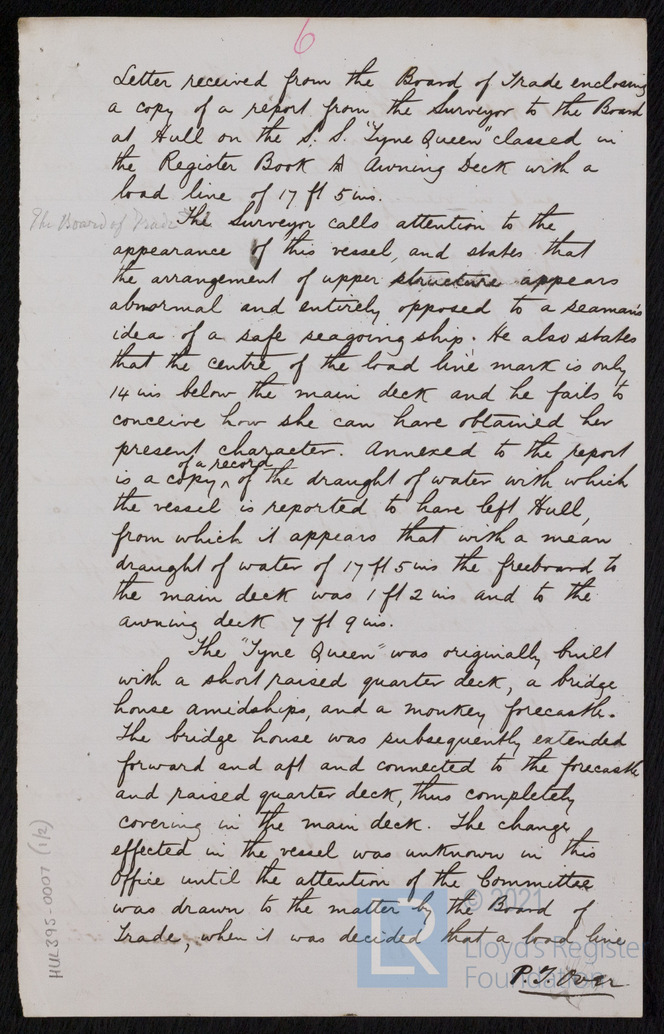 6
Letter received from the Board of Trade enclosing
a copy of a report from the Surveyor to the Board
at Hull on the S.S. "Tyne Queen" classed in
the Register Book A Awning Deck with a
load line of 17 ft 5 ins.
The Board of Trade
The Surveyor calls attention to the
appearance of this vessel, and states that
the arrangement of upper structure appears
abnormal and entirely opposed to a seaman's
idea of a safe seagoing ship. He also states
that the centre of the load line mark is only
14 ins below the main deck and he fails to
conceive how she can have obtained her
present character. Annexed to the report
of a record
is a copy ^ of the draught of water with which
the vessel is reported to have left Hull,
from which it appears that with a mean
draught of water of 17 ft 5 ins the freeboard to
the main deck was 1 ft 2 ins and to the
awning deck 7 ft 9 ins.
The "Tyne Queen" was originally built
with a short raised quarter deck, a bridge
house amidships, and a monkey forecastle.
The bridge house was subsequently extended
forward and aft and connected to the forecastle
and raised quarter deck, thus completely
covering in the main deck. The change
effected in the vessel was unknown in this
Office until the attention of the Committee
was drawn to the matter by the Board of
Trade, when it was decided that a load line
P.T.Over
HUL395-0007 (1/2)
LR
© 2021
Lloyd's Register
Foundation